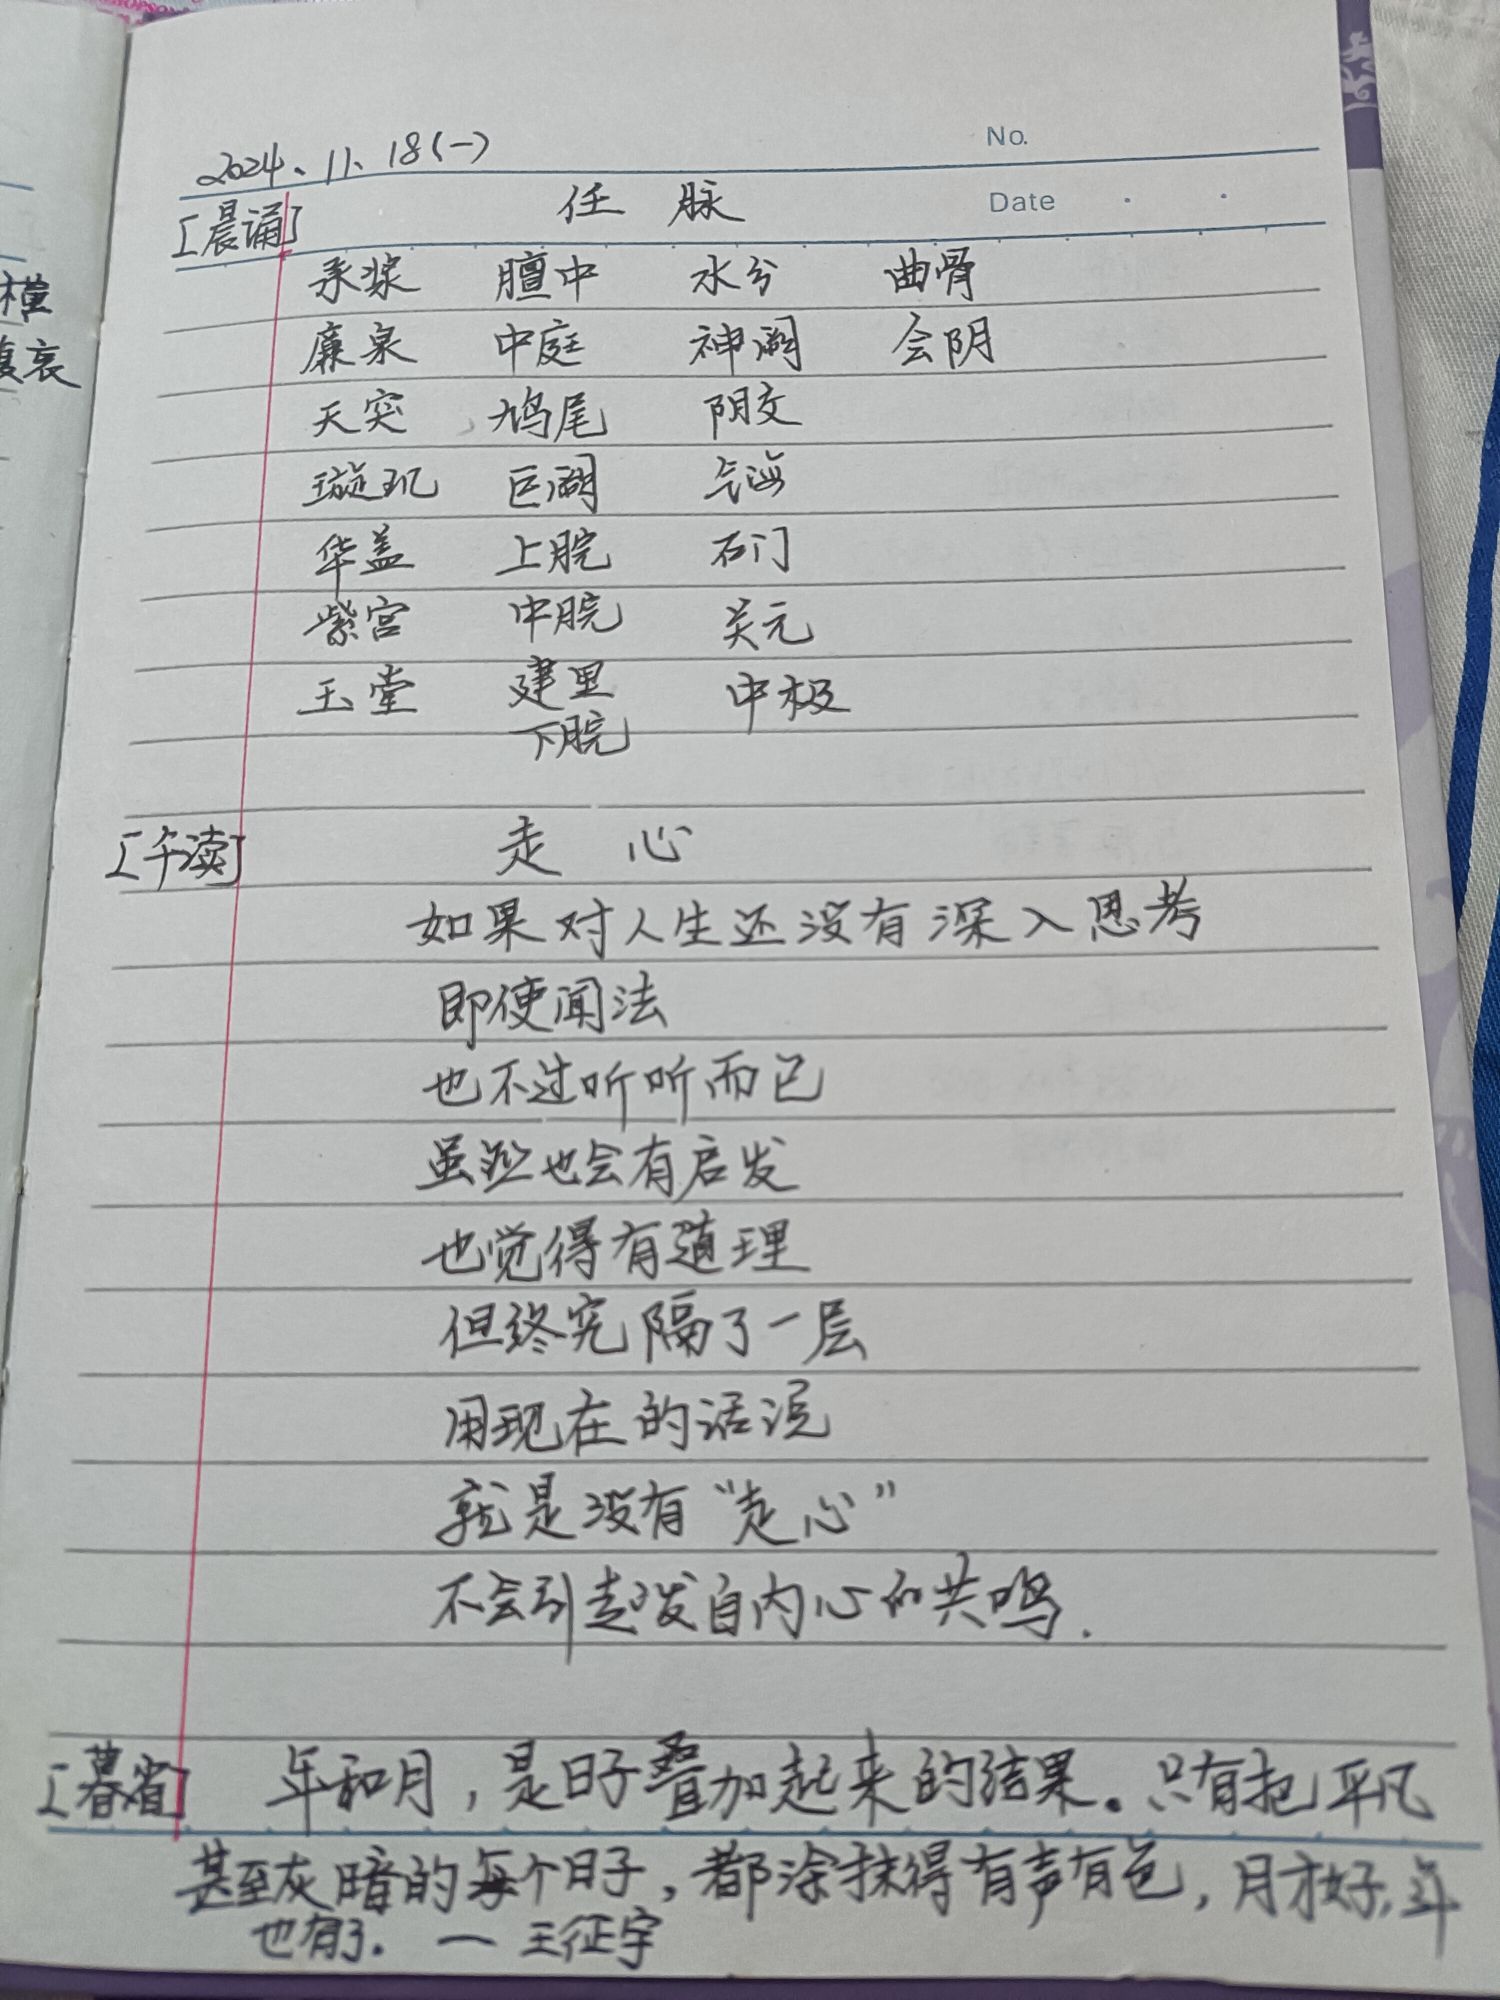 横
复哀
No.
2024.11.18(一)
Date
[晨诵] 任 脉
承浆 膻中 水分 曲骨
廉泉 中庭 神阙 会阴
天突 鸠尾 阴交
璇玑 巨阙 气海
华盖 上脘 石门
紫宫 中脘 关元
玉堂 建里 中极
下脘
[午读] 走 心
如果对人生还没有深入思考
即使闻法
也不过听听而已
虽然也会有启发
也觉得有道理
但终究隔了一层
用现在的话说
就是没有“走心”
不会引起发自内心的共鸣.
[暮省] 年和月，是日子叠加起来的结果。只有把平凡
甚至灰暗的每个日子，都涂抹得有声有色，月才好，年
也有了. — 王征宇